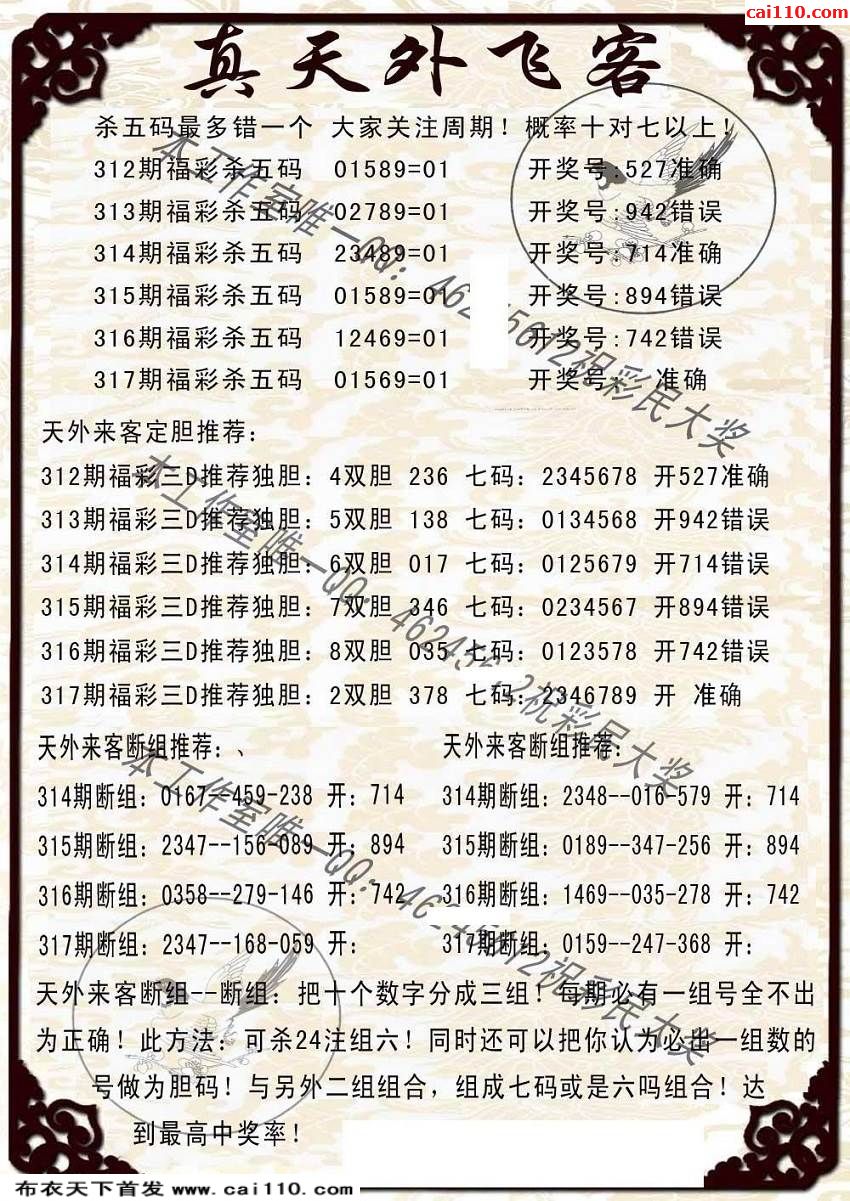 cai110.com
真天外飞客
杀五码最多错一个 大家关注周期！概率十对七以上！
312期福彩杀五码 01589=01 开奖号:527准确
313期福彩杀五码 02789=01 开奖号:942错误
314期福彩杀五码 23489=01 开奖号:714准确
315期福彩杀五码 01589=01 开奖号:894错误
316期福彩杀五码 12469=01 开奖号:742错误
317期福彩杀五码 01569=01 开奖号: 准确
天外来客定胆推荐：
312期福彩三D推荐独胆：4双胆 236 七码：2345678 开527准确
313期福彩三D推荐独胆：5双胆 138 七码：0134568 开942错误
314期福彩三D推荐独胆：6双胆 017 七码：0125679 开714错误
315期福彩三D推荐独胆：7双胆 346 七码：0234567 开894错误
316期福彩三D推荐独胆：8双胆 035 七码：0123578 开742错误
317期福彩三D推荐独胆：2双胆 378 七码：2346789 开 准确
天外来客断组推荐：、 天外来客断组推荐：
314期断组：0167--459-238 开：714 314期断组：2348--016-579 开：714
315期断组：2347--156-089 开：894 315期断组：0189--347-256 开：894
316期断组：0358--279-146 开：742 316期断组：1469--035-278 开：742
317期断组：2347--168-059 开： 317期断组：0159--247-368 开：
天外来客断组--断组：把十个数字分成三组！每期必有一组号全不出
为正确！此方法：可杀24注组六！同时还可以把你认为必出一组数的
号做为胆码！与另外二组组合，组成七码或是六吗组合！达
到最高中奖率！
布衣天下首发 www.cai110.com